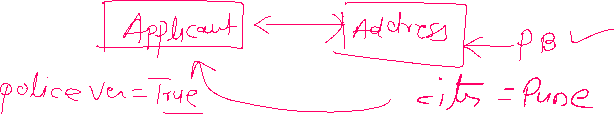 Applicant Address
PB
police ver = True city = Pune